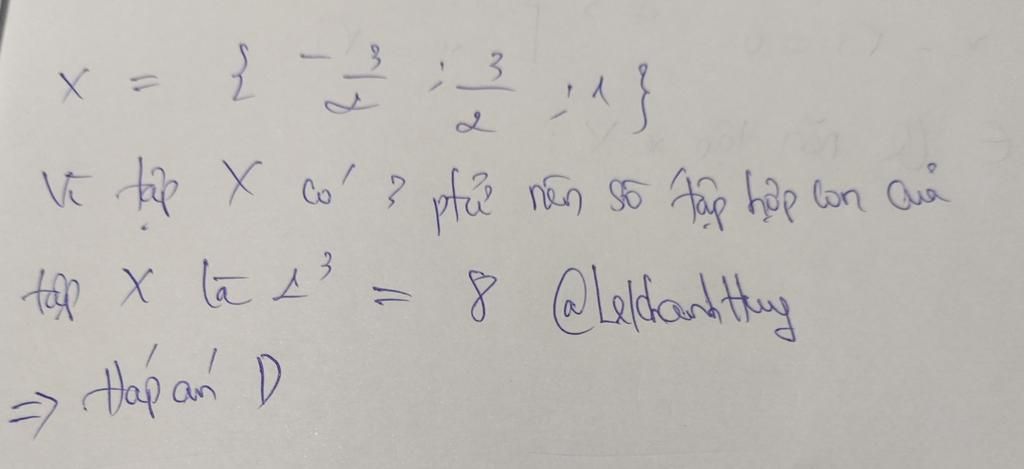 X = { -3/2 ; 3/2 ; 1 }
Vì tập X có 3 ptử nên số tập hợp con của
tập X là 2³ = 8 @LeKhanhHuy
=> Đáp án D